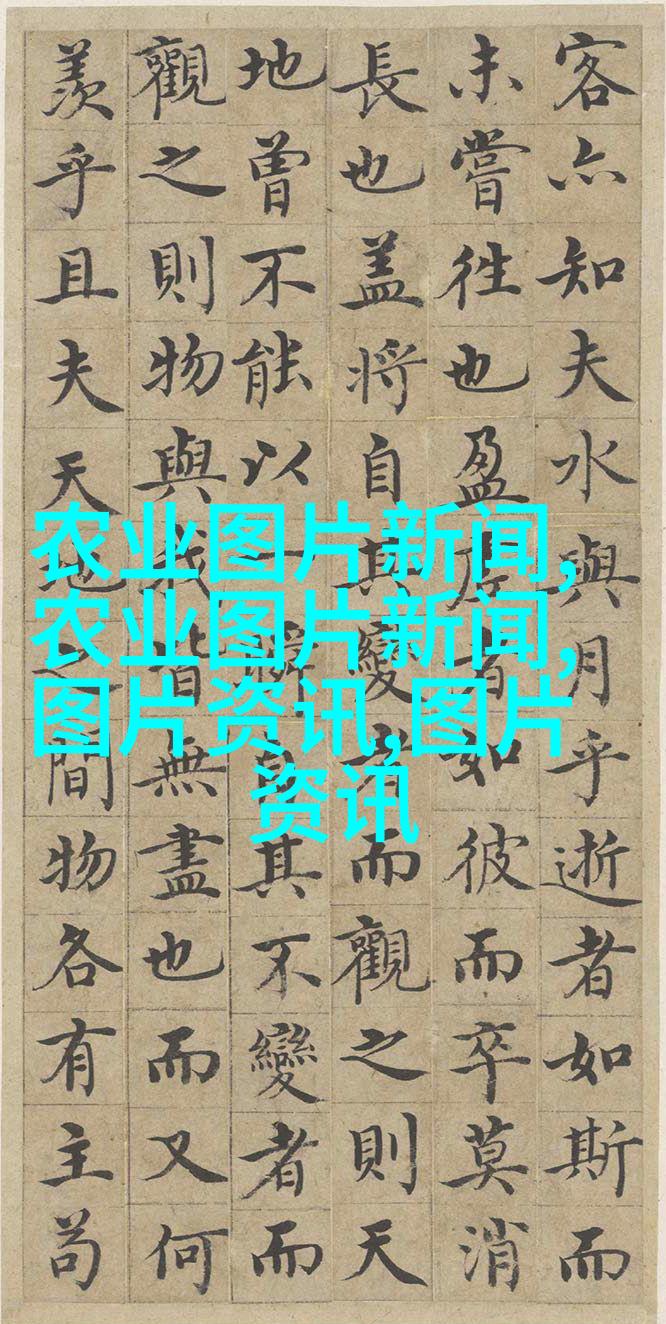 客亦知夫水與月乎逝者如斯而
未嘗往也盈虛者如彼而卒莫消
長也盖將自其變者而觀之則天
地曾不能以一瞬自其不變者而
觀之則物與我皆無盡也而又何
羨乎且夫天地之間物各有主苟
农业图片新闻,
农业图片新闻,
图片资讯,图片
资讯